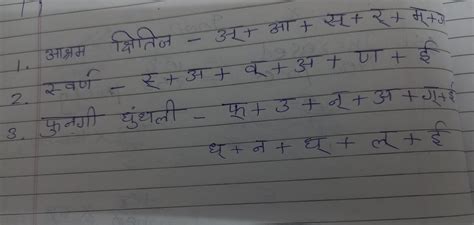 1. आश्रम क्षितिज - अ + आ + स् + र + म + अ
2. स्वर्ण - र + अ + व् + अ + ण + ई
3. फुनगी धुंधली - फ् + उ + न् + अ + ग् + ई
ध् + न + ध् + ल् + ई